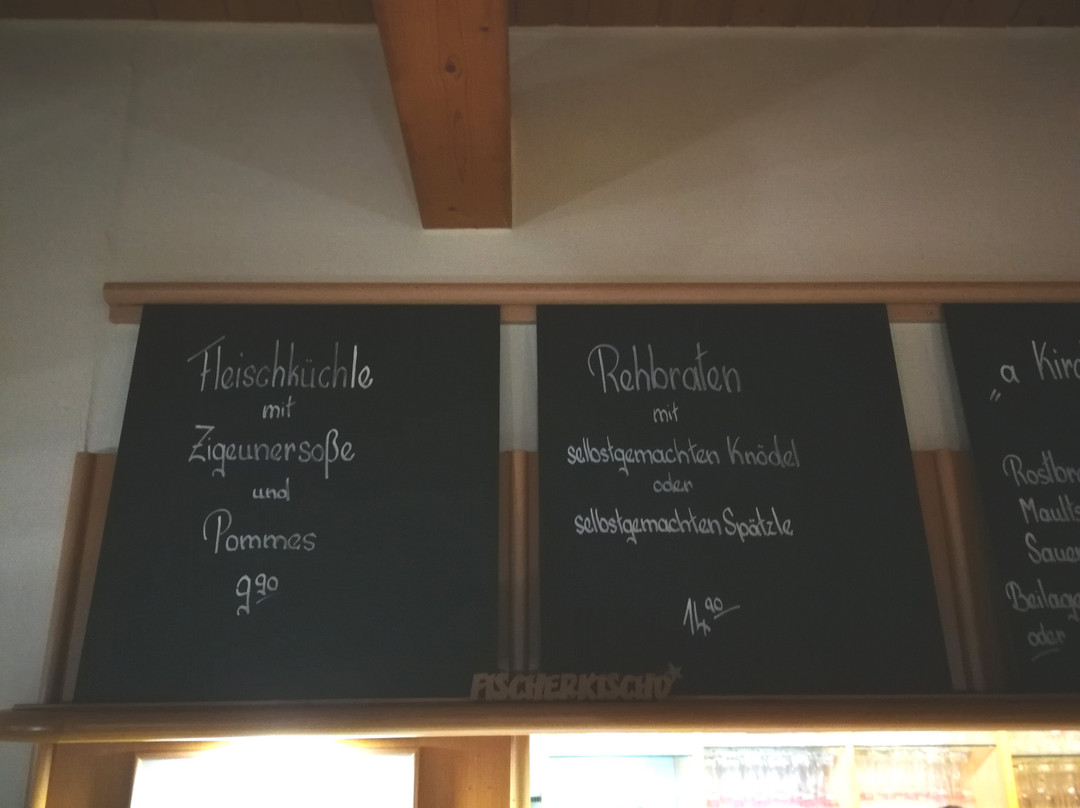 Fleischküchle
mit
Zigeunersoße
und
Pommes
9,90
Rehbraten
mit
selbstgemachten Knödel
oder
selbstgemachten Spätzle
14,90
„a Kirc
Rostbra
Maults
Sauer
Beilage
oder
FISCHERKISCHD